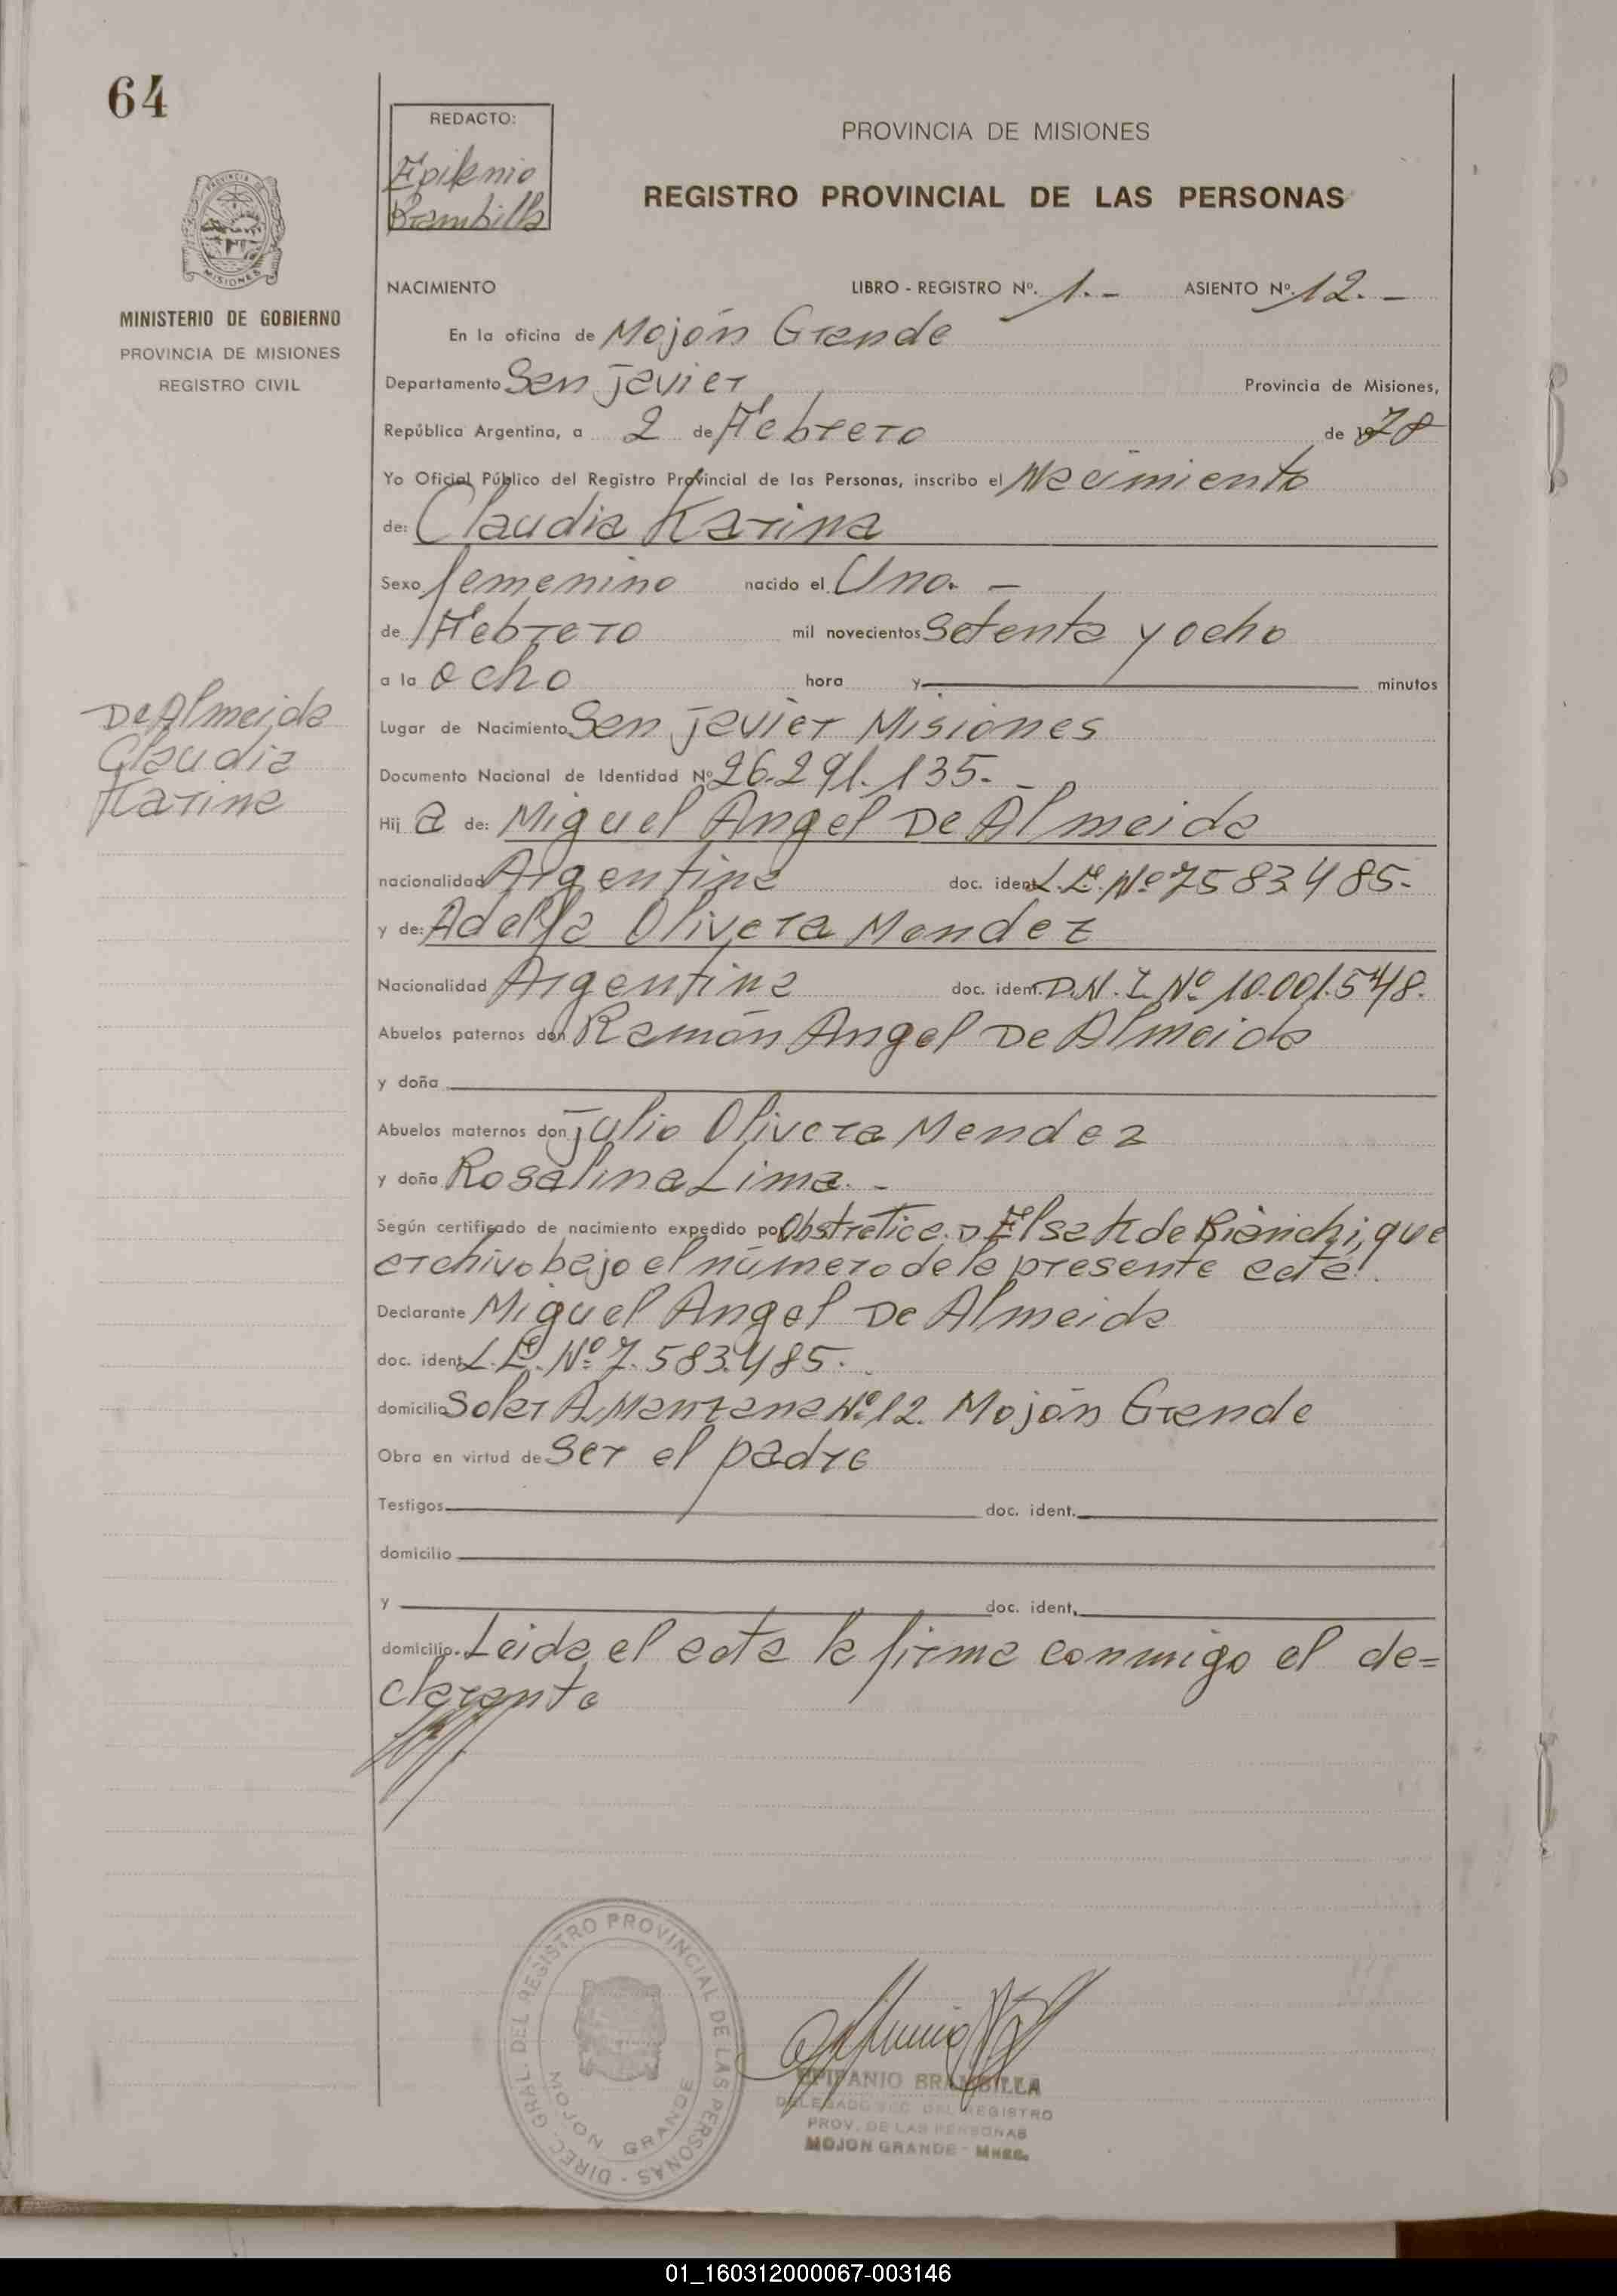 64
REDACTO:
Epifanio
Brambilla
PROVINCIA DE MISIONES
REGISTRO PROVINCIAL DE LAS PERSONAS
MINISTERIO DE GOBIERNO
PROVINCIA DE MISIONES
REGISTRO CIVIL
NACIMIENTO LIBRO - REGISTRO Nº. 1.- ASIENTO Nº. 12.-
En la oficina de Mojón Grande
Departamento San Javier Provincia de Misiones,
República Argentina, a 2 de Febrero de 1978
Yo Oficial Público del Registro Provincial de las Personas, inscribo el Nacimiento
de: Claudia Karina
Sexo femenino nacido el Uno.-
de Febrero mil novecientos Setenta y ocho
a la ocho hora y minutos
De Almeida
Claudia
Karina
Lugar de Nacimiento San Javier Misiones
Documento Nacional de Identidad Nº 26.291.135.-
Hij a de: Miguel Angel De Almeida
nacionalidad Argentina doc. ident. L.E. Nº 7583485.-
y de: Adella Olivera Mendez
Nacionalidad Argentina doc. ident. D.N.I. Nº 10.001.548.
Abuelos paternos don Ramón Angel De Almeida
y doña
Abuelos maternos don Julio Olivera Mendez
y doña Rosalina Lima.-
Según certificado de nacimiento expedido por Obstretica. D Elsa K de Bianchi, que
archivo bajo el número de la presente acta!.
Declarante Miguel Angel De Almeida
doc. ident. L.E. Nº 7.583.485.
domicilio Solar A, Manzana Nº 12. Mojón Grande
Obra en virtud de Ser el padre
Testigos doc. ident.
domicilio
y doc. ident.
domicilio. Leida el acta la firma conmigo el de=
clarante
DIREC. GRAL. DEL REGISTRO PROVINCIAL DE LAS PERSONAS
MOJON GRANDE
EPIFANIO BRAMBILLA
DELEGADO SEC. DEL REGISTRO
PROV. DE LAS PERSONAS
MOJON GRANDE - MNES.
01_160312000067-003146